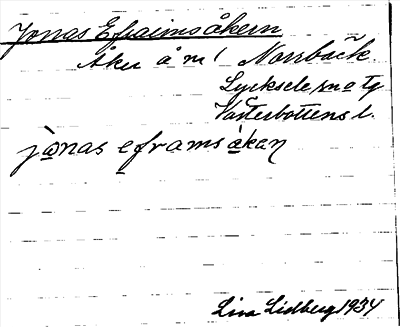 Jonas Efraimsåkern
Åker å m/ Norrbäck
Lycksele sn o tg
Västerbottens l.
jònas eframsàkan
Lisa Lidberg 1934